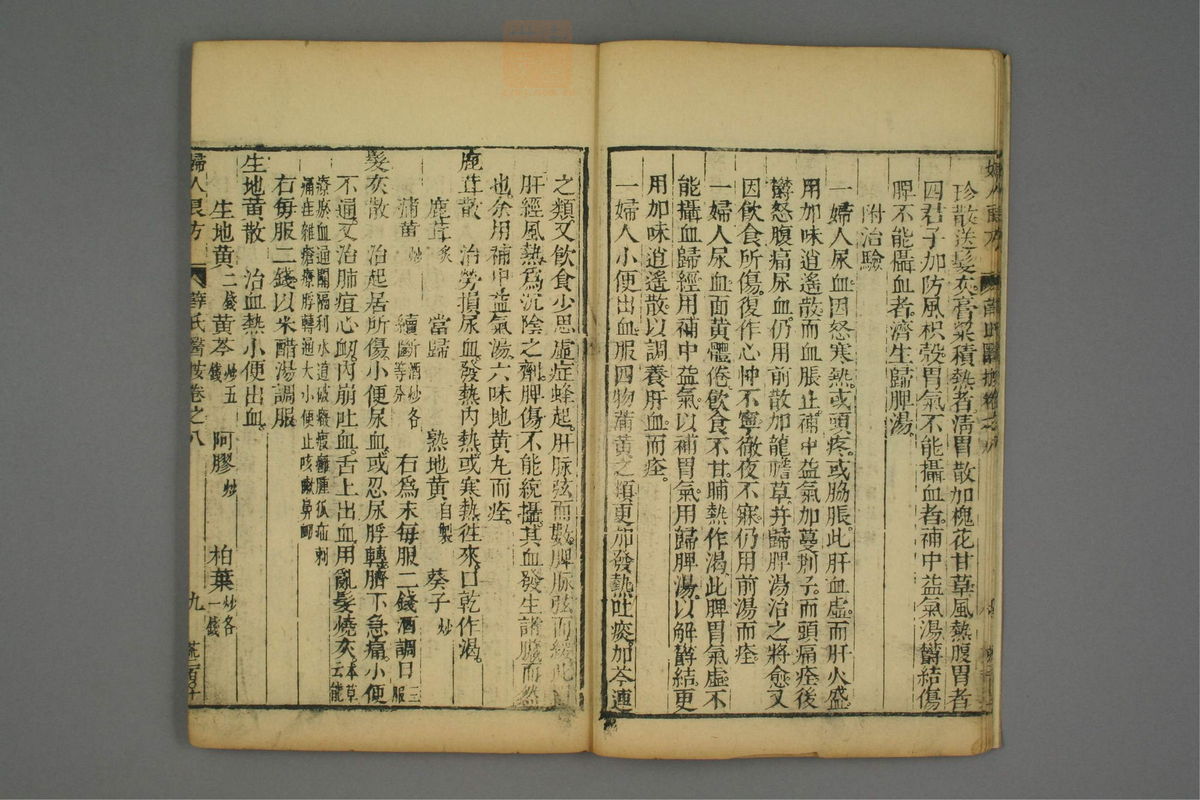 珍散送髮灰膏粱積熱者清胃散加槐花甘草風熱腹胃者
四君子加防風枳殼胃氣不能攝血者補中益氣湯欝結傷
脾不能攝血者濟生歸脾湯
附治驗
一婦人尿血因怒寒熱或頭疼或脇脹此肝血虛而肝火盛
用加味逍遙散而血脹止補中益氣加蔓荆子而頭痛痊後
欝怒腹痛尿血仍用前散加龍膽草并歸脾湯治之將愈又
因飲食所傷復作心忡不寧徹夜不寐仍用前湯而痊
一婦人尿血面黃體倦飲食不甘晡熱作渴此脾胃氣虛不
能攝血歸經用補中益氣以補胃氣用歸脾湯以解欝結更
用加味逍遙散以調養肝血而痊
一婦人小便出血服四物蒲黃之類更加發熱吐痰加芩連
之類又飲食少思虛症蜂起肝脉弦而數脾脉弦而緩此
肝經風熱為沉陰之劑脾傷不能統攝其血發生諸臟而然
也余用補中益氣湯六味地黃丸而痊
鹿茸散 治勞損尿血發熱內熱或寒熱徃來口乾作渴
鹿茸炙 當歸 熟地黃自製 葵子炒
蒲黃炒 續斷酒炒各等分 右為末每服二錢酒調日三服
髮灰散 治起居所傷小便尿血或忍尿脬轉臍下急痛小便
不通又治肺疽心衂內崩吐血舌上出血用亂髮燒灰本草云能
療瘀血通關隔利水道破癥瘕癰腫狐疝刺
痛在雜瘡療脬轉通大小便止咳嗽鼻衂
右每服二錢以米醋湯調服
生地黃散 治血熱小便出血
生地黃二錢 黃芩炒五錢 阿膠炒 柏葉炒各一錢
婦人良方 薛氏醫按卷之八 九